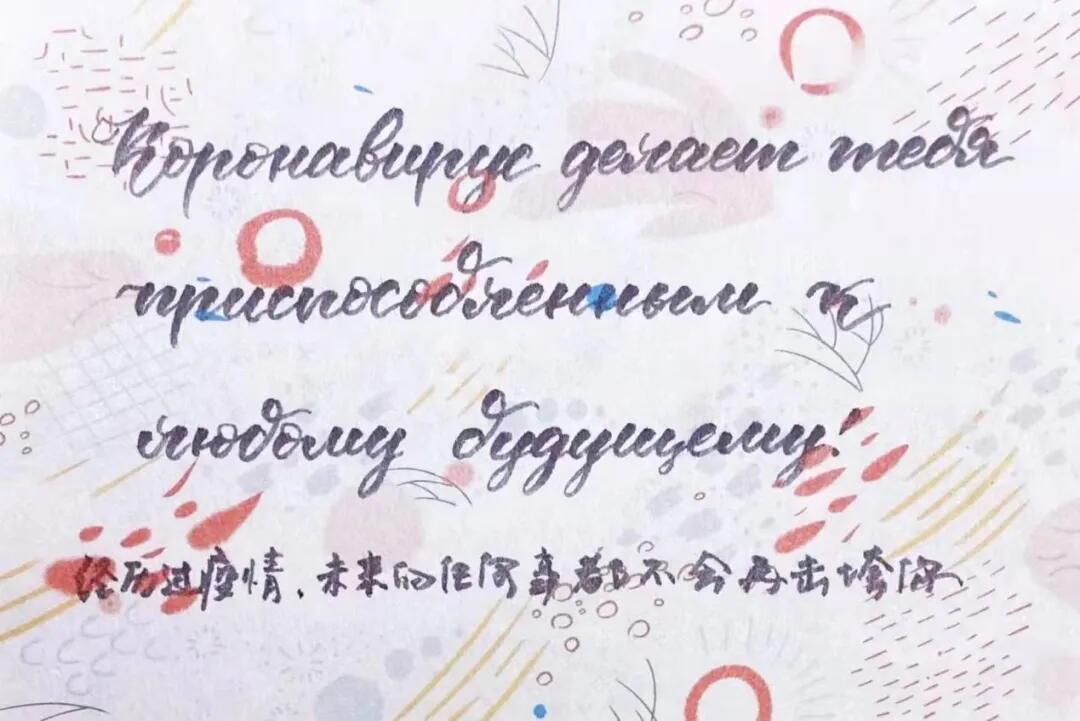 Коронавирус делает тебя
приспособленным к
любому будущему!
经历过疫情、未来的任何事都不会再击垮你